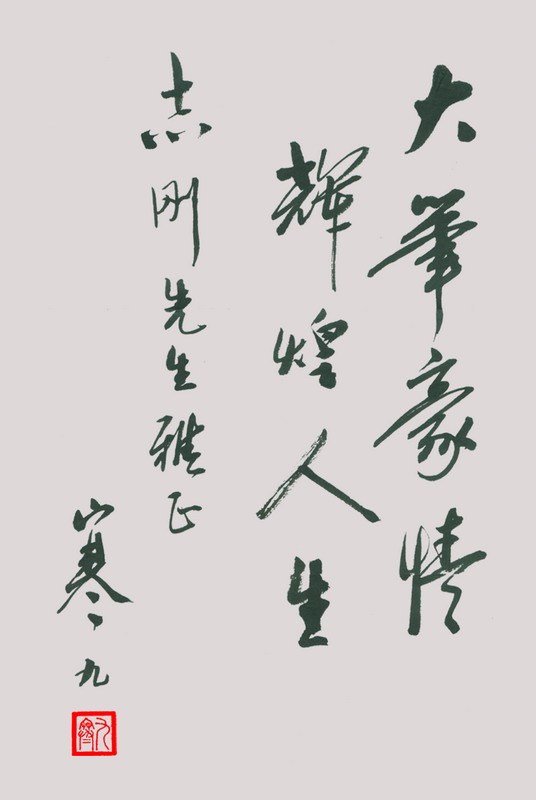 大筆豪情
輝煌人生
志刚先生雅正
寒九